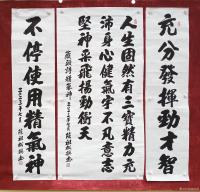 充分發揮動才智
人生固然有三寶精力充
沛身心健氣宇不凡意志
堅神采飛揚勁衝天
不停使用精氣神